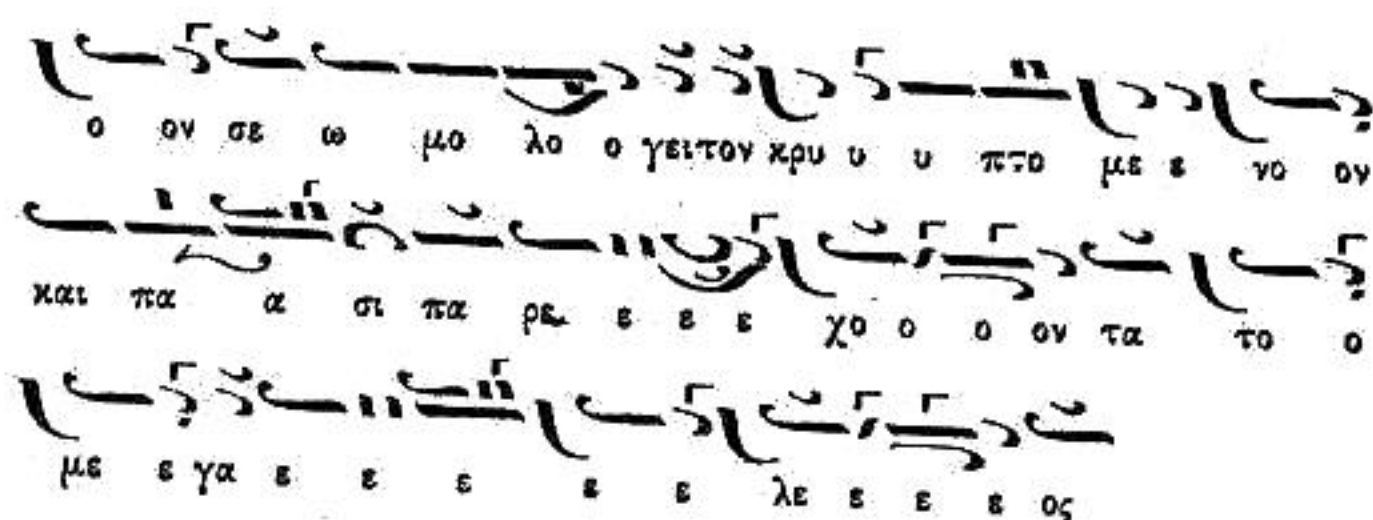 ο ον σε ω μο λο ο γει τον κρυ υ υ πτο με ε νο ον
και πα α σι πα ρε ε ε ε χο ο ο ον τα το ο
με ε γα ε ε ε ε ε λε ε ε ε ος